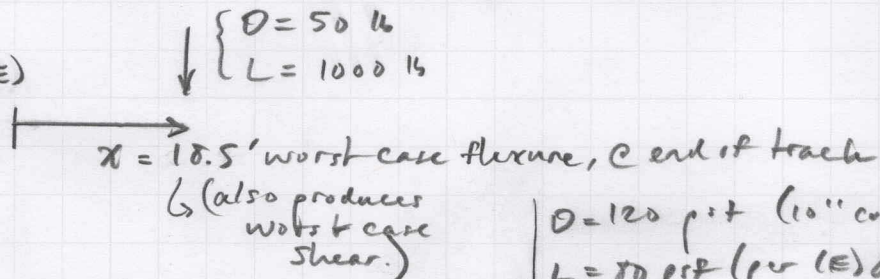 D = 50 lb
L = 1000 lb
E)
x = 18.5' worst case flexure, @ end of track
(also produces
worst case
shear.)
D = 120 psf (10" co
L = 80 psf (per (E)